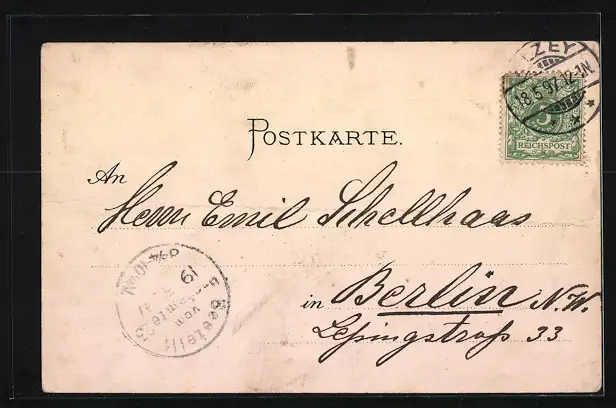 ZEY
18.5.97.12-1N.
5
REICHSPOST
POSTKARTE.
An
Herrn Emil Schellhaas
in Berlin N.W.
Lessingstraß 33
Bestellt
vom
Postamte
19